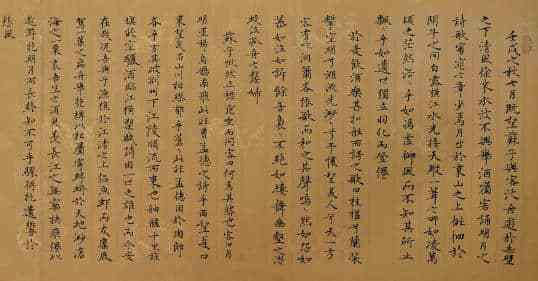 壬戌之秋七月既望蘇子與客泛舟遊於赤壁
之下清風徐來水波不興舉酒屬客誦明月之
詩歌窈窕之章少焉月出於東山之上徘徊於
斗牛之間白露橫江水光接天縱一葦之所如凌萬
頃之茫然浩浩乎如馮虛御風而不知其所止
飄飄乎如遺世獨立羽化而登僊
於是飲酒樂甚扣舷而歌之歌曰桂棹兮蘭槳
擊空明兮溯流光渺渺兮予懷望美人兮天一方
客有吹洞簫者倚歌而和之其聲嗚嗚然如怨如
慕如泣如訴餘音裊裊不絕如縷舞幽壑之潛
蛟泣孤舟之嫠婦
蘇子愀然正襟危坐而問客曰何爲其然也客曰月
明星稀烏鵲南飛此非曹孟德之詩乎西望夏口
東望武昌山川相繆鬱乎蒼蒼此非孟德之困於周郎
者乎方其破荊州下江陵順流而東也舳艫千里旌
旗蔽空釃酒臨江橫槊賦詩固一世之雄也而今安
在哉況吾與子漁樵於江渚之上侶魚蝦而友麋鹿
駕一葉之扁舟舉匏樽以相屬寄蜉蝣於天地渺滄
海之一粟哀吾生之須臾羨長江之無窮挾飛僊以
遨遊抱明月而長終知不可乎驟得託遺響於
悲風